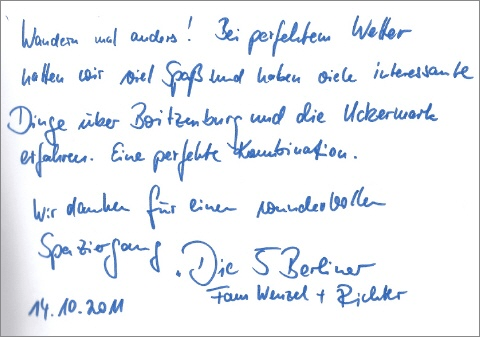 Wandern mal anders! Bei perfektem Wetter
hatten wir viel Spaß und haben viele interessante
Dinge über Boitzenburg und die Uckermark
erfahren. Eine perfekte Kombination.
Wir danken für einen wundervollen
Spaziergang.
Die 5 Berliner
Fam Wenzel + Richter
14.10.2011